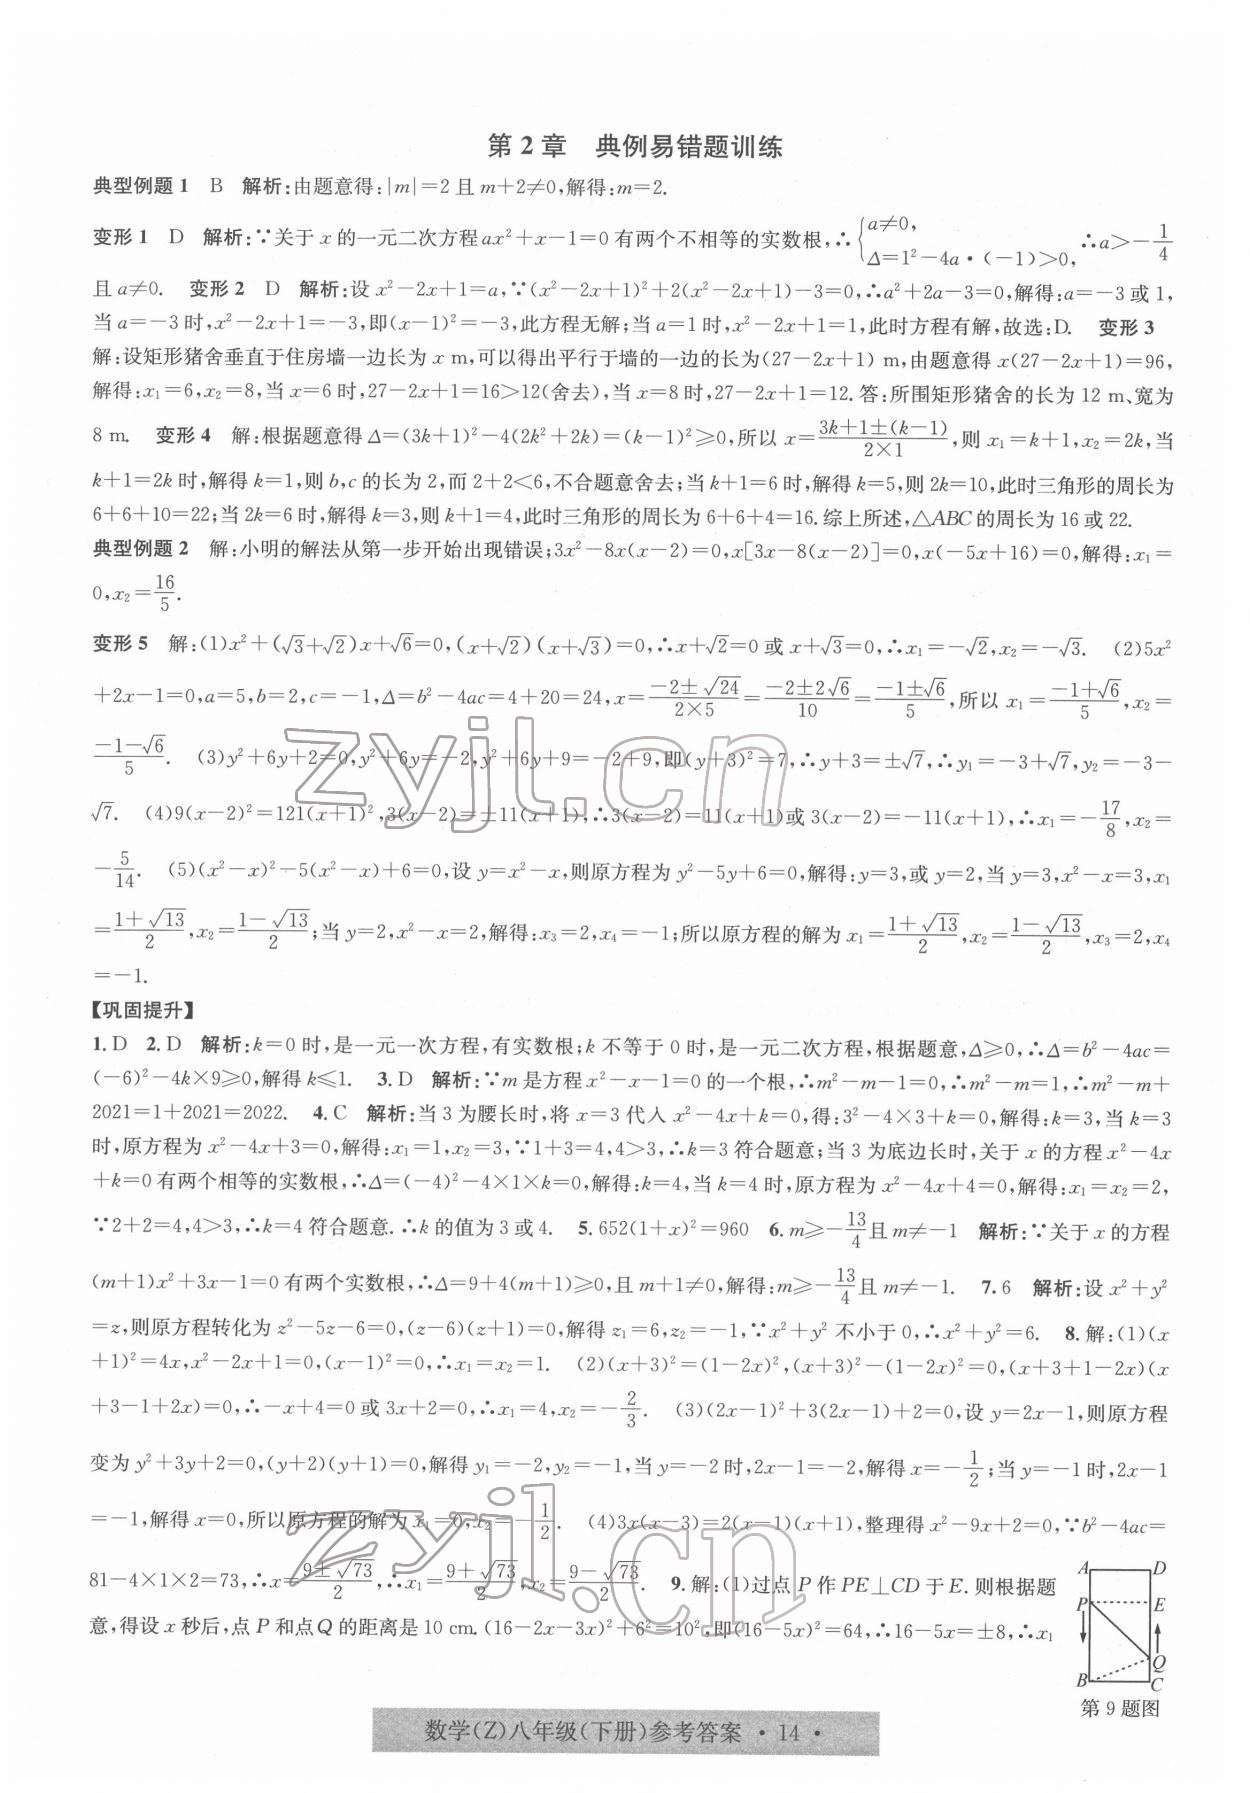 第2章　典例易错题训练
典型例题1　B　解析:由题意得:|m|=2且m+2≠0,解得:m=2.
变形1　D　解析:∵关于x的一元二次方程ax²+x-1=0有两个不相等的实数根,∴{a≠0, Δ=1²-4a·(-1)>0, ∴a>-1/4
且a≠0.　变形2　D　解析:设x²-2x+1=a,∵(x²-2x+1)²+2(x²-2x+1)-3=0,∴a²+2a-3=0,解得:a=-3或1,
当a=-3时,x²-2x+1=-3,即(x-1)²=-3,此方程无解;当a=1时,x²-2x+1=1,此时方程有解,故选:D.　变形3
解:设矩形猪舍垂直于住房墙一边长为x m,可以得出平行于墙的一边的长为(27-2x+1) m,由题意得x(27-2x+1)=96,
解得:x₁=6,x₂=8,当x=6时,27-2x+1=16>12(舍去),当x=8时,27-2x+1=12.答:所围矩形猪舍的长为12 m、宽为
8 m.　变形4　解:根据题意得Δ=(3k+1)²-4(2k²+2k)=(k-1)²≥0,所以x=(3k+1±(k-1))/(2×1),则x₁=k+1,x₂=2k,当
k+1=2k时,解得k=1,则b,c的长为2,而2+2<6,不合题意舍去;当k+1=6时,解得k=5,则2k=10,此时三角形的周长为
6+6+10=22;当2k=6时,解得k=3,则k+1=4,此时三角形的周长为6+6+4=16.综上所述,△ABC的周长为16或22.
典型例题2　解:小明的解法从第一步开始出现错误;3x²-8x(x-2)=0,x[3x-8(x-2)]=0,x(-5x+16)=0,解得:x₁=
0,x₂=16/5.
变形5　解:(1)x²+(√3+√2)x+√6=0,(x+√2)(x+√3)=0,∴x+√2=0或x+√3=0,∴x₁=-√2,x₂=-√3.　(2)5x²
+2x-1=0,a=5,b=2,c=-1,Δ=b²-4ac=4+20=24,x=(-2±√24)/(2×5)=(-2±2√6)/10=(-1±√6)/5,所以x₁=(-1+√6)/5,x₂=
(-1-√6)/5.　(3)y²+6y+2=0,y²+6y=-2,y²+6y+9=-2+9,即(y+3)²=7,∴y+3=±√7,∴y₁=-3+√7,y₂=-3-
√7.　(4)9(x-2)²=121(x+1)²,3(x-2)=±11(x+1),∴3(x-2)=11(x+1)或3(x-2)=-11(x+1),∴x₁=-17/8,x₂=
-5/14.　(5)(x²-x)²-5(x²-x)+6=0,设y=x²-x,则原方程为y²-5y+6=0,解得:y=3,或y=2,当y=3,x²-x=3,x₁
=(1+√13)/2,x₂=(1-√13)/2;当y=2,x²-x=2,解得:x₃=2,x₄=-1;所以原方程的解为x₁=(1+√13)/2,x₂=(1-√13)/2,x₃=2,x₄
=-1.
【巩固提升】
1.D　2.D　解析:k=0时,是一元一次方程,有实数根;k不等于0时,是一元二次方程,根据题意,Δ≥0,∴Δ=b²-4ac=
(-6)²-4k×9≥0,解得k≤1.　3.D　解析:∵m是方程x²-x-1=0的一个根,∴m²-m-1=0,∴m²-m=1,∴m²-m+
2021=1+2021=2022.　4.C　解析:当3为腰长时,将x=3代入x²-4x+k=0,得:3²-4×3+k=0,解得:k=3,当k=3
时,原方程为x²-4x+3=0,解得:x₁=1,x₂=3,∵1+3=4,4>3,∴k=3符合题意;当3为底边长时,关于x的方程x²-4x
+k=0有两个相等的实数根,∴Δ=(-4)²-4×1×k=0,解得:k=4,当k=4时,原方程为x²-4x+4=0,解得:x₁=x₂=2,
∵2+2=4,4>3,∴k=4符合题意.∴k的值为3或4.　5.652(1+x)²=960　6.m≥-13/4且m≠-1　解析:∵关于x的方程
(m+1)x²+3x-1=0有两个实数根,∴Δ=9+4(m+1)≥0,且m+1≠0,解得:m≥-13/4且m≠-1.　7.6　解析:设x²+y²
=z,则原方程转化为z²-5z-6=0,(z-6)(z+1)=0,解得z₁=6,z₂=-1,∵x²+y²不小于0,∴x²+y²=6.　8.解:(1)(x
+1)²=4x,x²-2x+1=0,(x-1)²=0,∴x₁=x₂=1.　(2)(x+3)²=(1-2x)²,(x+3)²-(1-2x)²=0,(x+3+1-2x)(x
+3-1+2x)=0,∴-x+4=0或3x+2=0,∴x₁=4,x₂=-2/3.　(3)(2x-1)²+3(2x-1)+2=0,设y=2x-1,则原方程
变为y²+3y+2=0,(y+2)(y+1)=0,解得y₁=-2,y₂=-1,当y=-2时,2x-1=-2,解得x=-1/2;当y=-1时,2x-1
=-1,解得x=0,所以原方程的解为x₁=0,x₂=-1/2.　(4)3x(x-3)=2(x-1)(x+1),整理得x²-9x+2=0,∵b²-4ac=
81-4×1×2=73,∴x=(9±√73)/2,∴x₁=(9+√73)/2,x₂=(9-√73)/2.　9.解:(1)过点P作PE⊥CD于E.则根据题
意,得设x秒后,点P和点Q的距离是10 cm.(16-2x-3x)²+6²=10²,即(16-5x)²=64,∴16-5x=±8,∴x₁
A D
P E
Q
B C
第9题图
zyjl.cn
zyjl.cn
数学(Z)八年级(下册)参考答案 · 14 ·